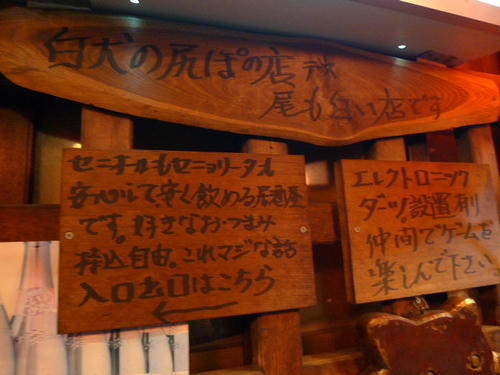 白犬の尻ぽの店デス
尾も白い店です
セニョールもセニョリータも
安心して安く飲める居酒屋
です。好きなおつまみ
持込自由。これマジな話
入口出口はこちら
エレクトロニック
ダーツ設置有り
仲間でゲームを
楽しんで下さい